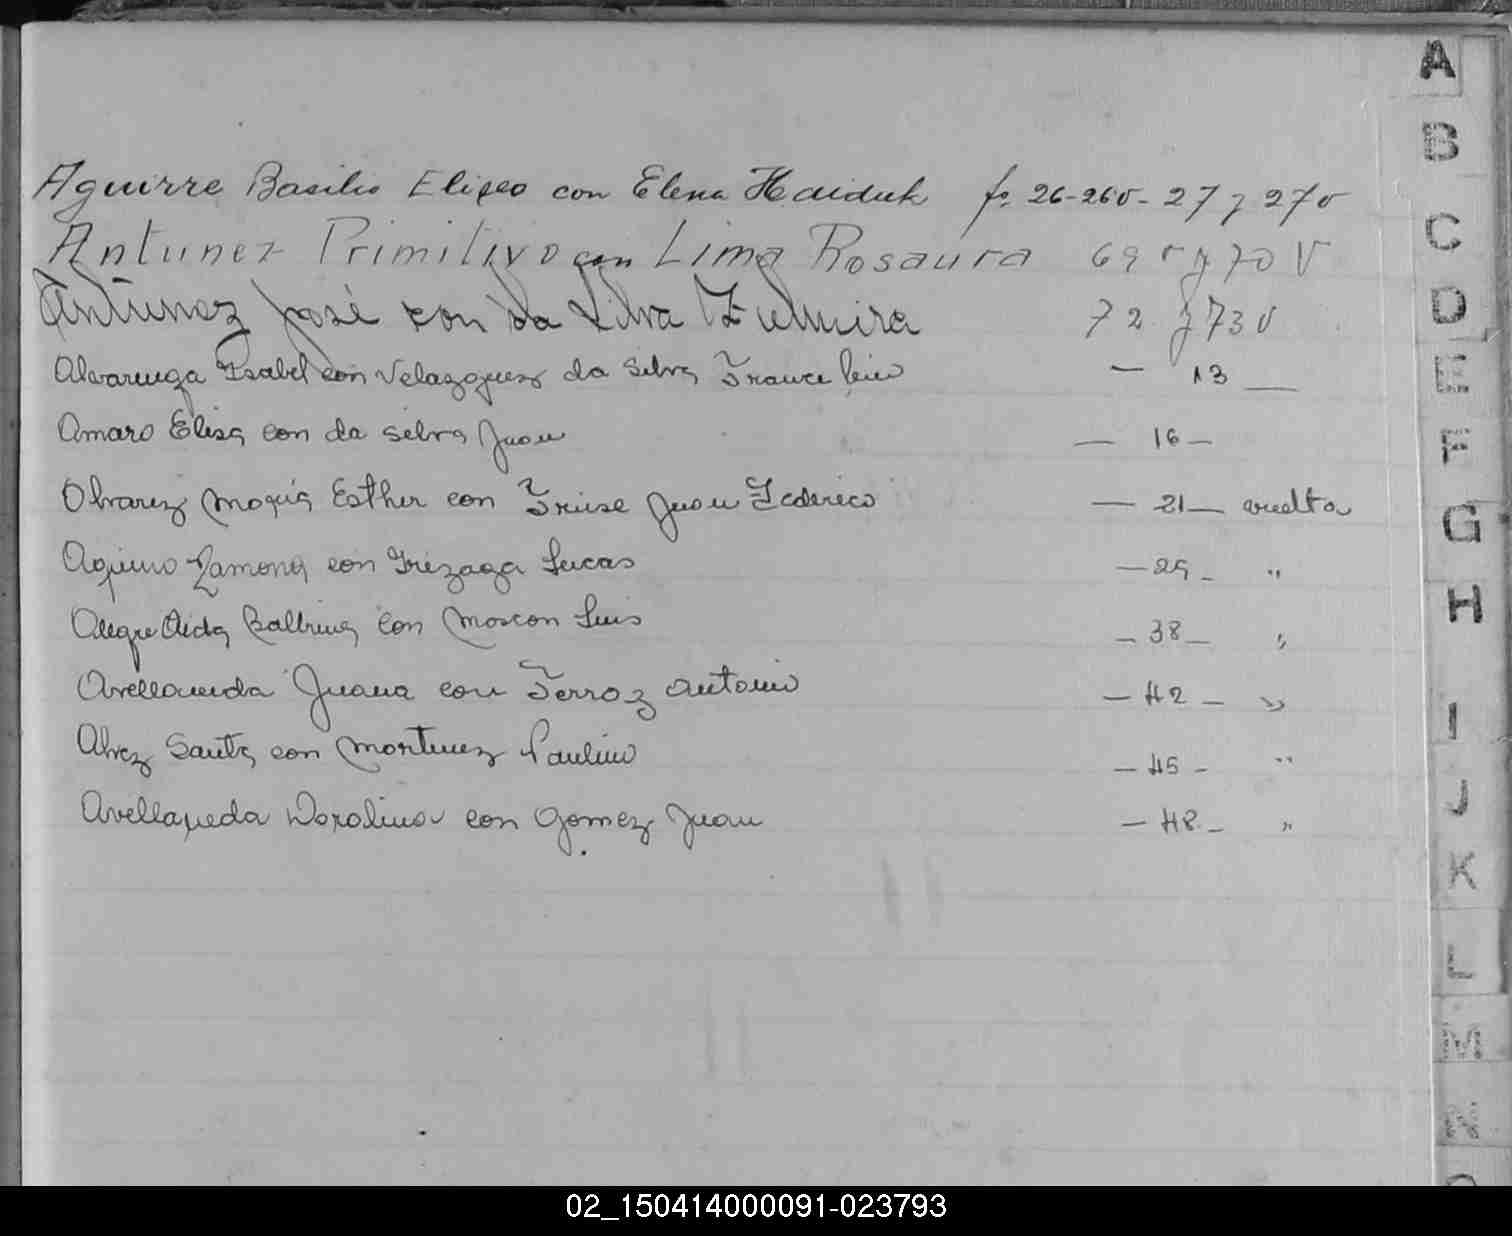 A
B
C
D
E
F
G
H
I
J
K
L
M
Aguirre Basilio Eliseo con Elena Haiduk fs. 26-26v-27 y 27v
Antunez Primitivo con Lima Rosaura 69 v y 70 V
Antunez José con da Silva Zulmira 72 y 73 V
Alvarenga Isabel con Velazquez da Silva — 13 —
Amaro Elisa con da Silva Juan — 16 —
Alvarez María Esther con Juan Federico — 21 — vuelta
Aquino Ramona con Lucas — 29 - "
Alegre Aida Balbina con Moscon Luis — 38 — "
Avellaneda Juana con Ferraz Antonio — 42 — "
Alvez Santa con Martinez Paulino — 45 - "
Avellaneda Doralina con Gomez Juan — 48 - "
02_150414000091-023793